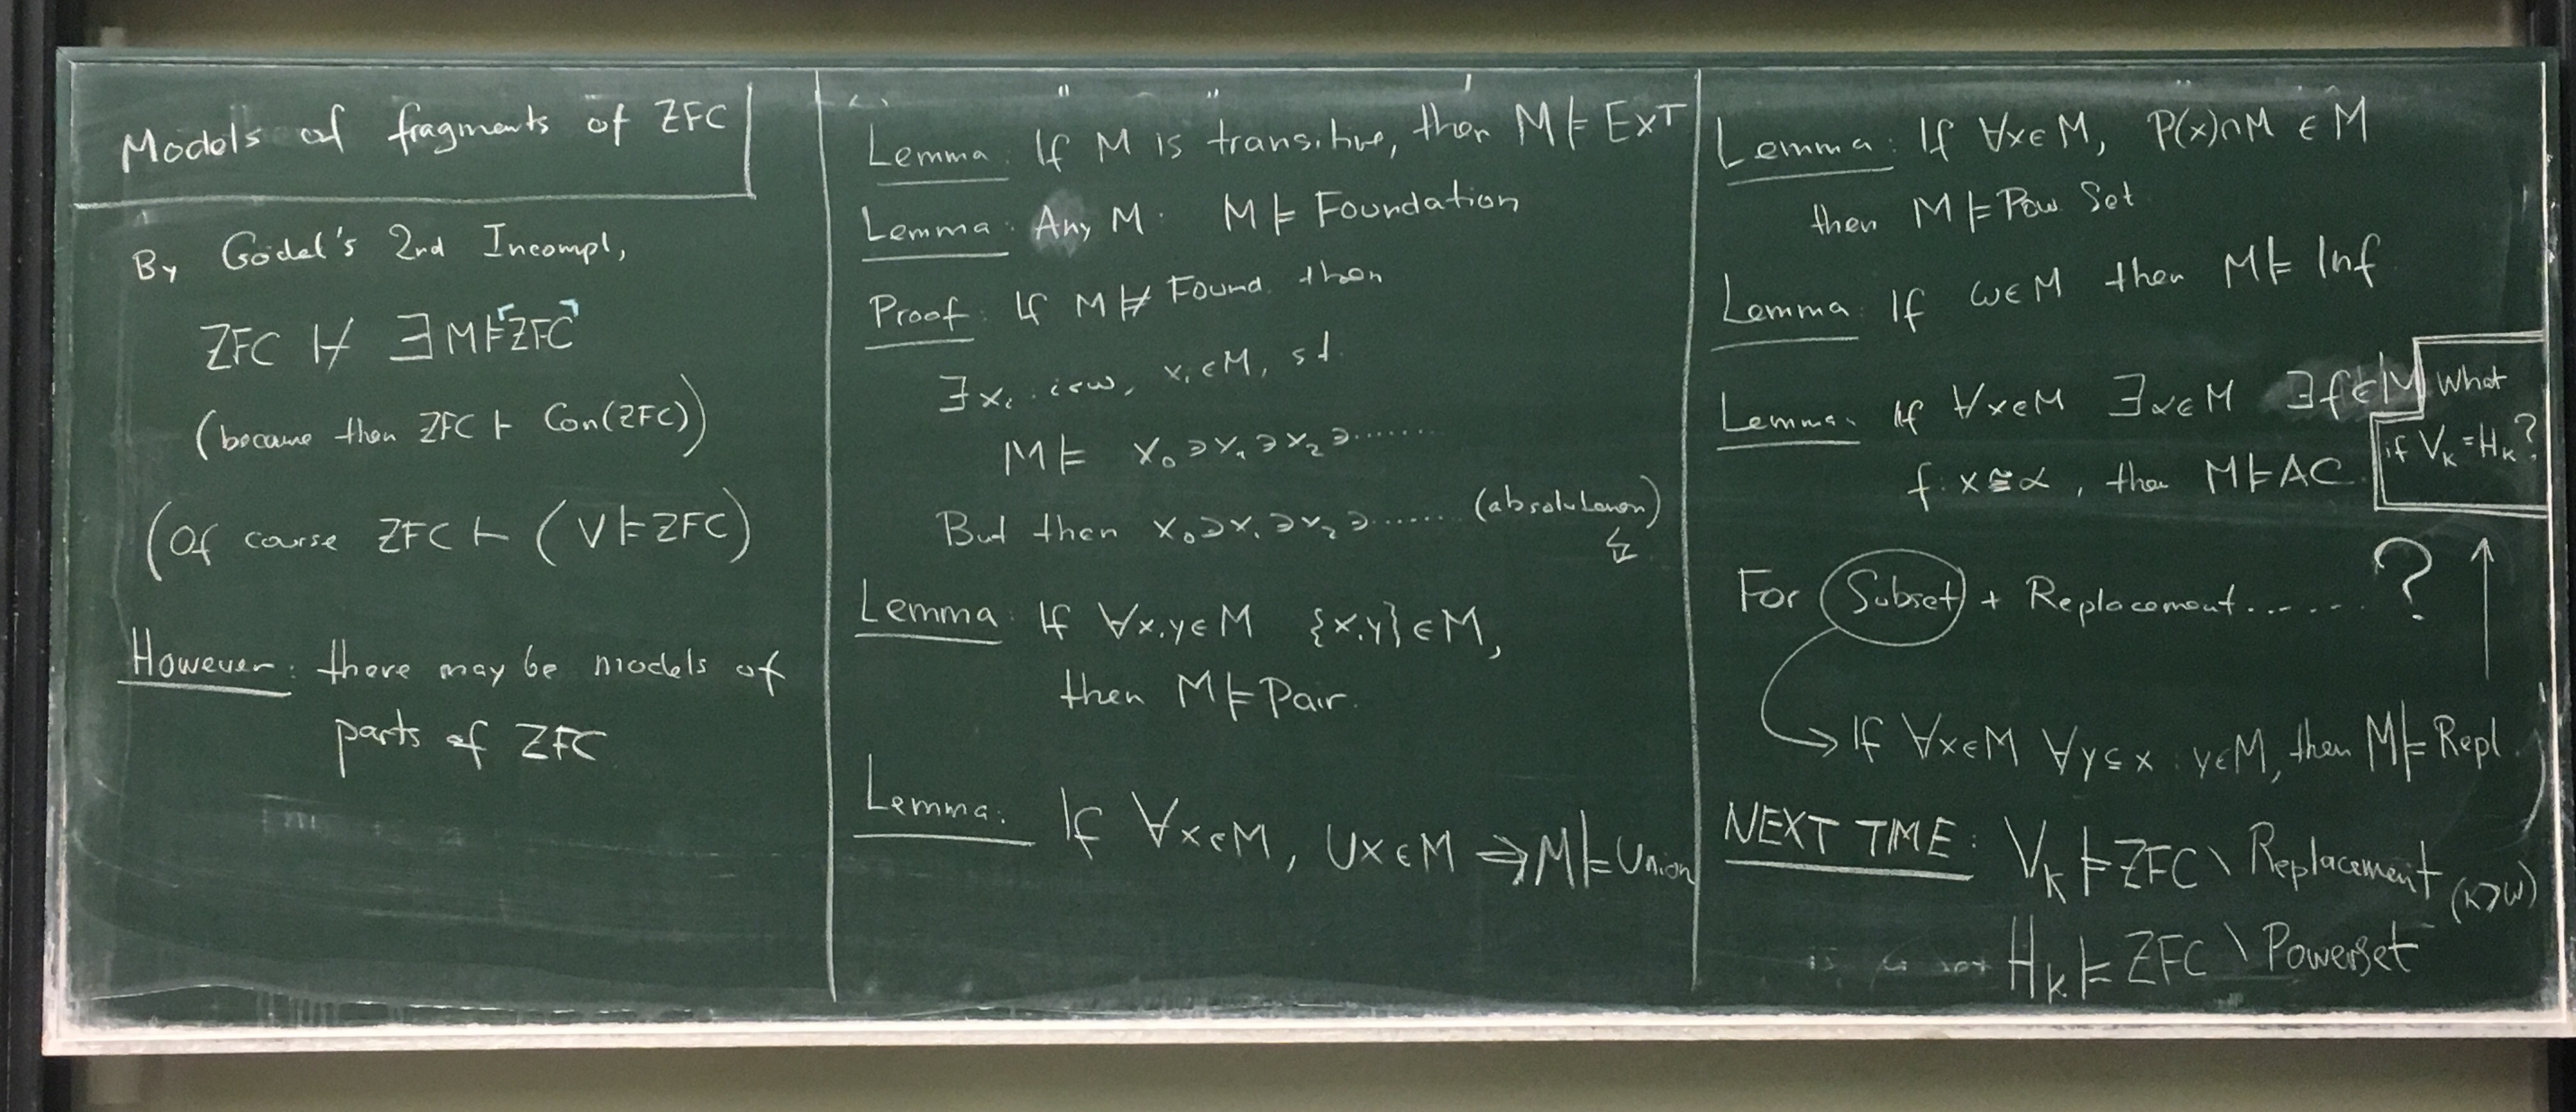 Models of fragments of ZFC
By Gödel's 2nd Incompl,
ZFC ⊬ ∃M⊨⌜ZFC⌝
(because then ZFC ⊢ Con(ZFC))
(Of course ZFC ⊢ (V⊨ZFC)
However: there may be models of
parts of ZFC
Lemma: If M is transitive, then M⊨ExT
Lemma: Any M: M⊨Foundation
Proof: If M⊭Found. then
∃xᵢ: i<ω, xᵢ∈M, st.
M⊨ x₀∋x₁∋x₂∋........
But then x₀∋x₁∋x₂∋...... (absoluteness)
↯
Lemma: If ∀x,y∈M {x,y}∈M,
then M⊨Pair.
Lemma: If ∀x∈M, ∪x∈M ⇒M⊨Union
Lemma: If ∀x∈M, P(x)∩M ∈ M
then M⊨Pow. Set
Lemma: If ω∈M then M⊨Inf
Lemma: If ∀x∈M ∃α∈M ∃f∈M
f: x≅α, then M⊨AC
What
if Vκ=Hκ?
For Subset + Replacement....... ?
If ∀x∈M ∀y⊆x: y∈M, then M⊨Repl.
NEXT TIME: Vκ⊨ZFC\Replacement (κ>ω)
Hκ⊨ZFC\Powerset